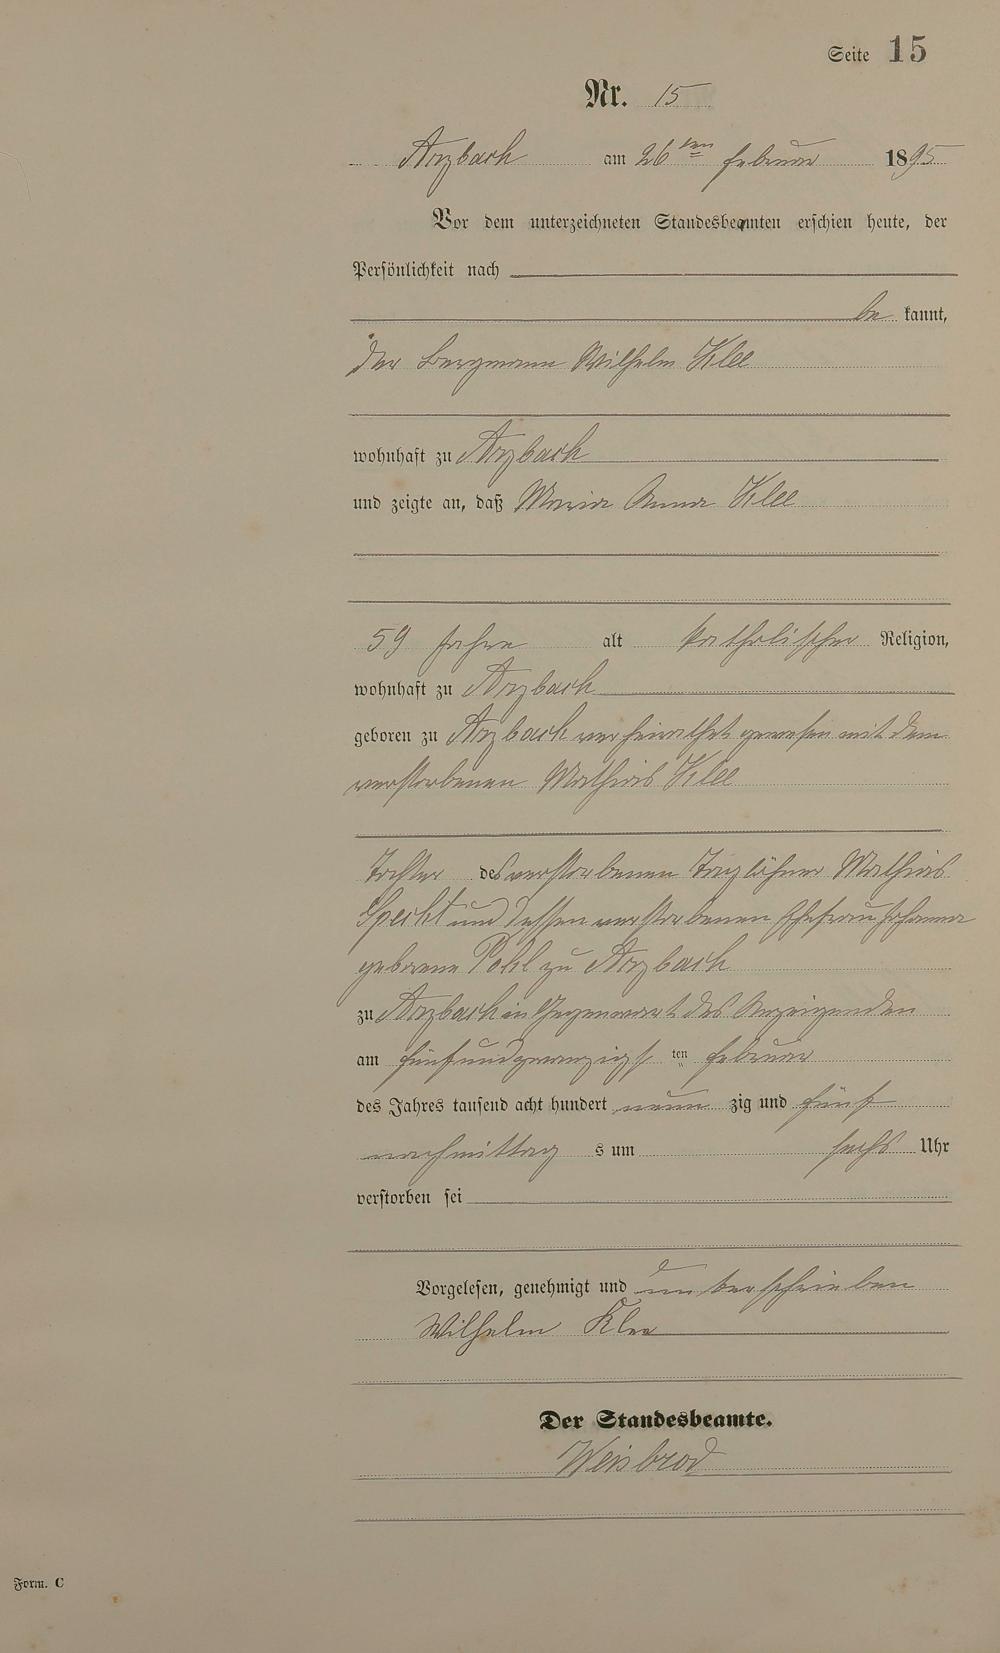 Seite 15
Nr. 15
Arzbach am 26ten Februar 1895
Vor dem unterzeichneten Standesbeamten erschien heute, der
Persönlichkeit nach
be kannt,
der Bergmann Wilhelm Klee
wohnhaft zu Arzbach
und zeigte an, daß Maria Anna Klee
59 Jahre alt katholischer Religion,
wohnhaft zu Arzbach
geboren zu Arzbach verheirathet gewesen mit dem
verstorbenen Mathias Klee
Tochter des verstorbenen Taglöhner Mathias
Specht und dessen verstorbenen Ehefrau Johanna
geborene Pohl zu Arzbach
zu Arzbach in Gegenwart des Anzeigenden
am fünfundzwanzigs ten Februar
des Jahres tausend acht hundert neun zig und fünf
nachmittag s um sechs Uhr
verstorben sei
Vorgelesen, genehmigt und unterschrieben
Wilhelm Klee
Der Standesbeamte.
Weisbrod
Form. C